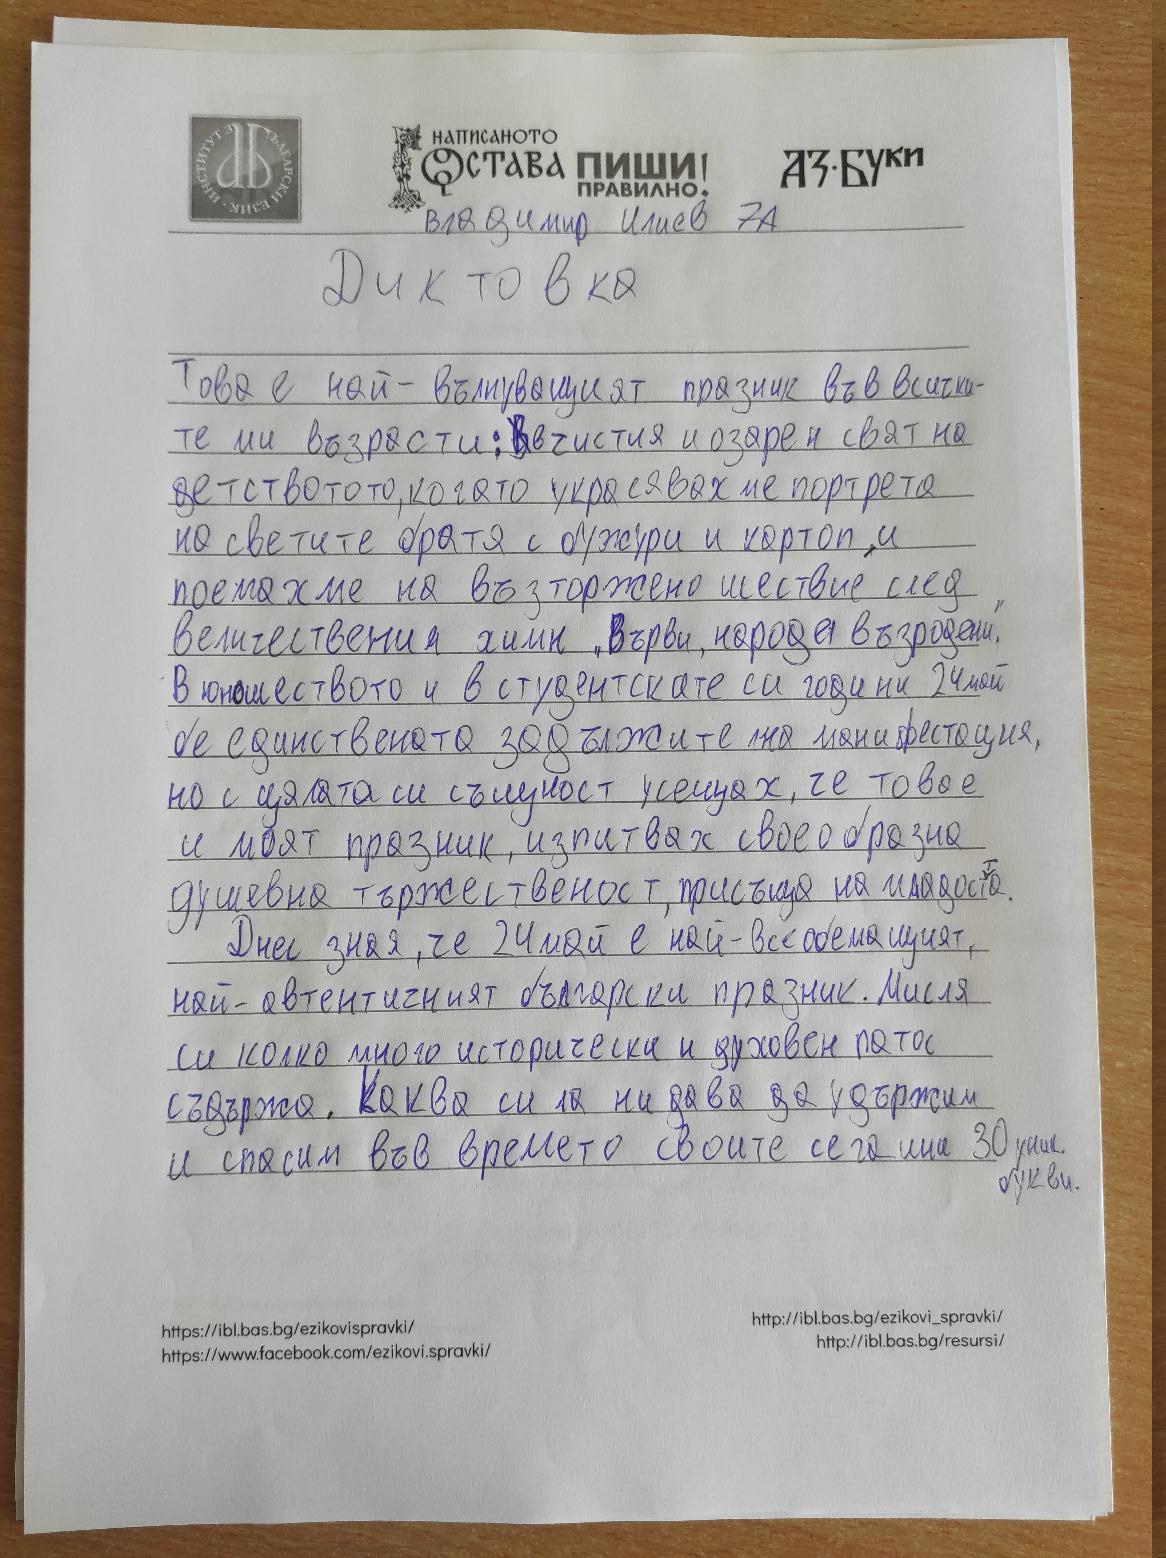 ИНСТИТУТ ЗА БЪЛГАРСКИ ЕЗИК
НАПИСАНОТО
ОСТАВА ПИШИ
ПРАВИЛНО!
АЗ·БУКИ
Владимир Илиев 7А
Диктовка
Това е най-вълнуващият празник във всички-
те ми възрасти: в чистия и озарен свят на
детствотото, когато украсявахме портрета
на светите братя с бужури и картоп, и
поемахме на възторжено шествие след
величествения химн „Върви, народе възродени“.
В юношеството и в студентскате си години 24 май
бе единствената задължителна манифестация,
но с цялата си същност усещах, че това е
и моят празник, изпитвах своеобразна
душевна тържественост, присъща на младостта.
Днес зная, че 24 май е най-всеобемащият,
най-автентичният български празник. Мисля
си колко много исторически и духовен патос
съдържа. Каква сила ни дава да удържим
и спасим във времето своите сегашни 30 уник.
букви.
https://ibl.bas.bg/ezikovispravki/
https://www.facebook.com/ezikovi.spravki/
http://ibl.bas.bg/ezikovi_spravki/
http://ibl.bas.bg/resursi/